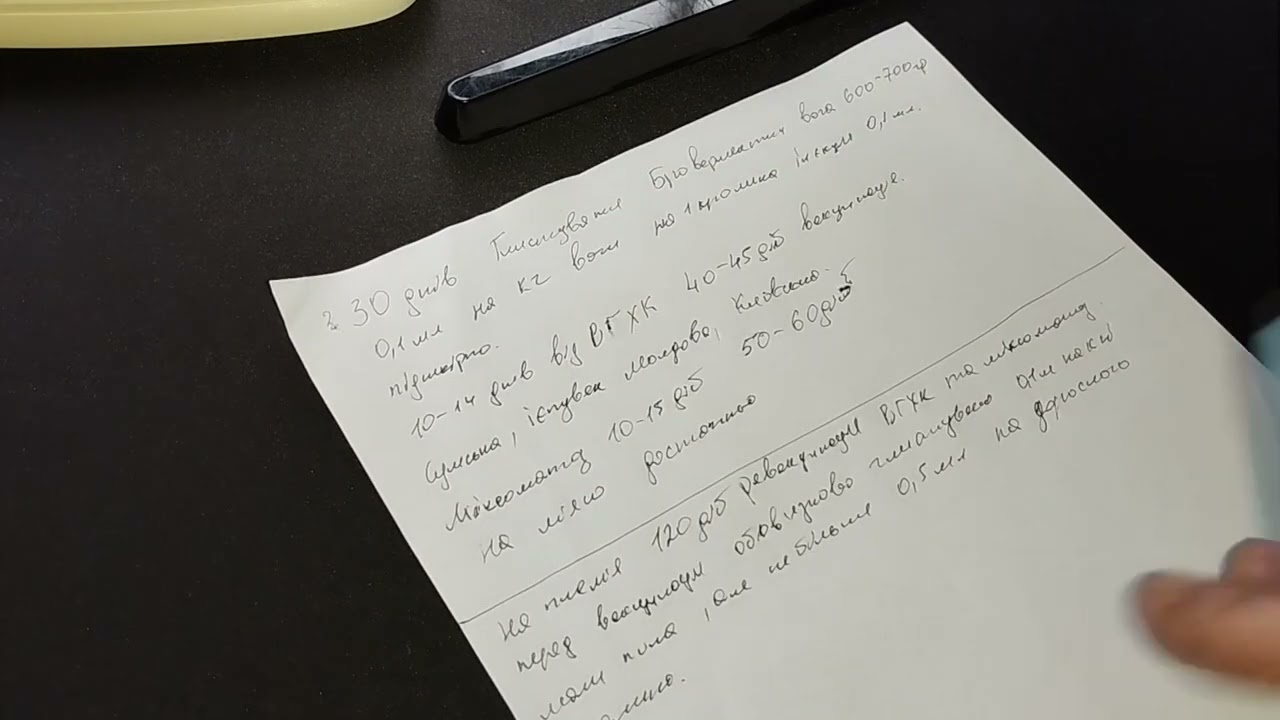 з 30 днів Глистування Бровермектин вага 600-700гр
0,1 мл на кг ваги на 1 кролика ін'єкції 0,1 мл.
підшкірно.
10-14 днів від ВГХК 40-45 діб вакцинація.
Сумська, існувск Молдова,
Міксоматоз 10-15 діб 50-60 діб
на м'ясо достатньо
На плем'я 120 діб ревакцинації ВГХК та міксоматоз.
перед вакцинацією обов'язково 0,1 мл на кг
, але не більше 0,5 мл на дорослого